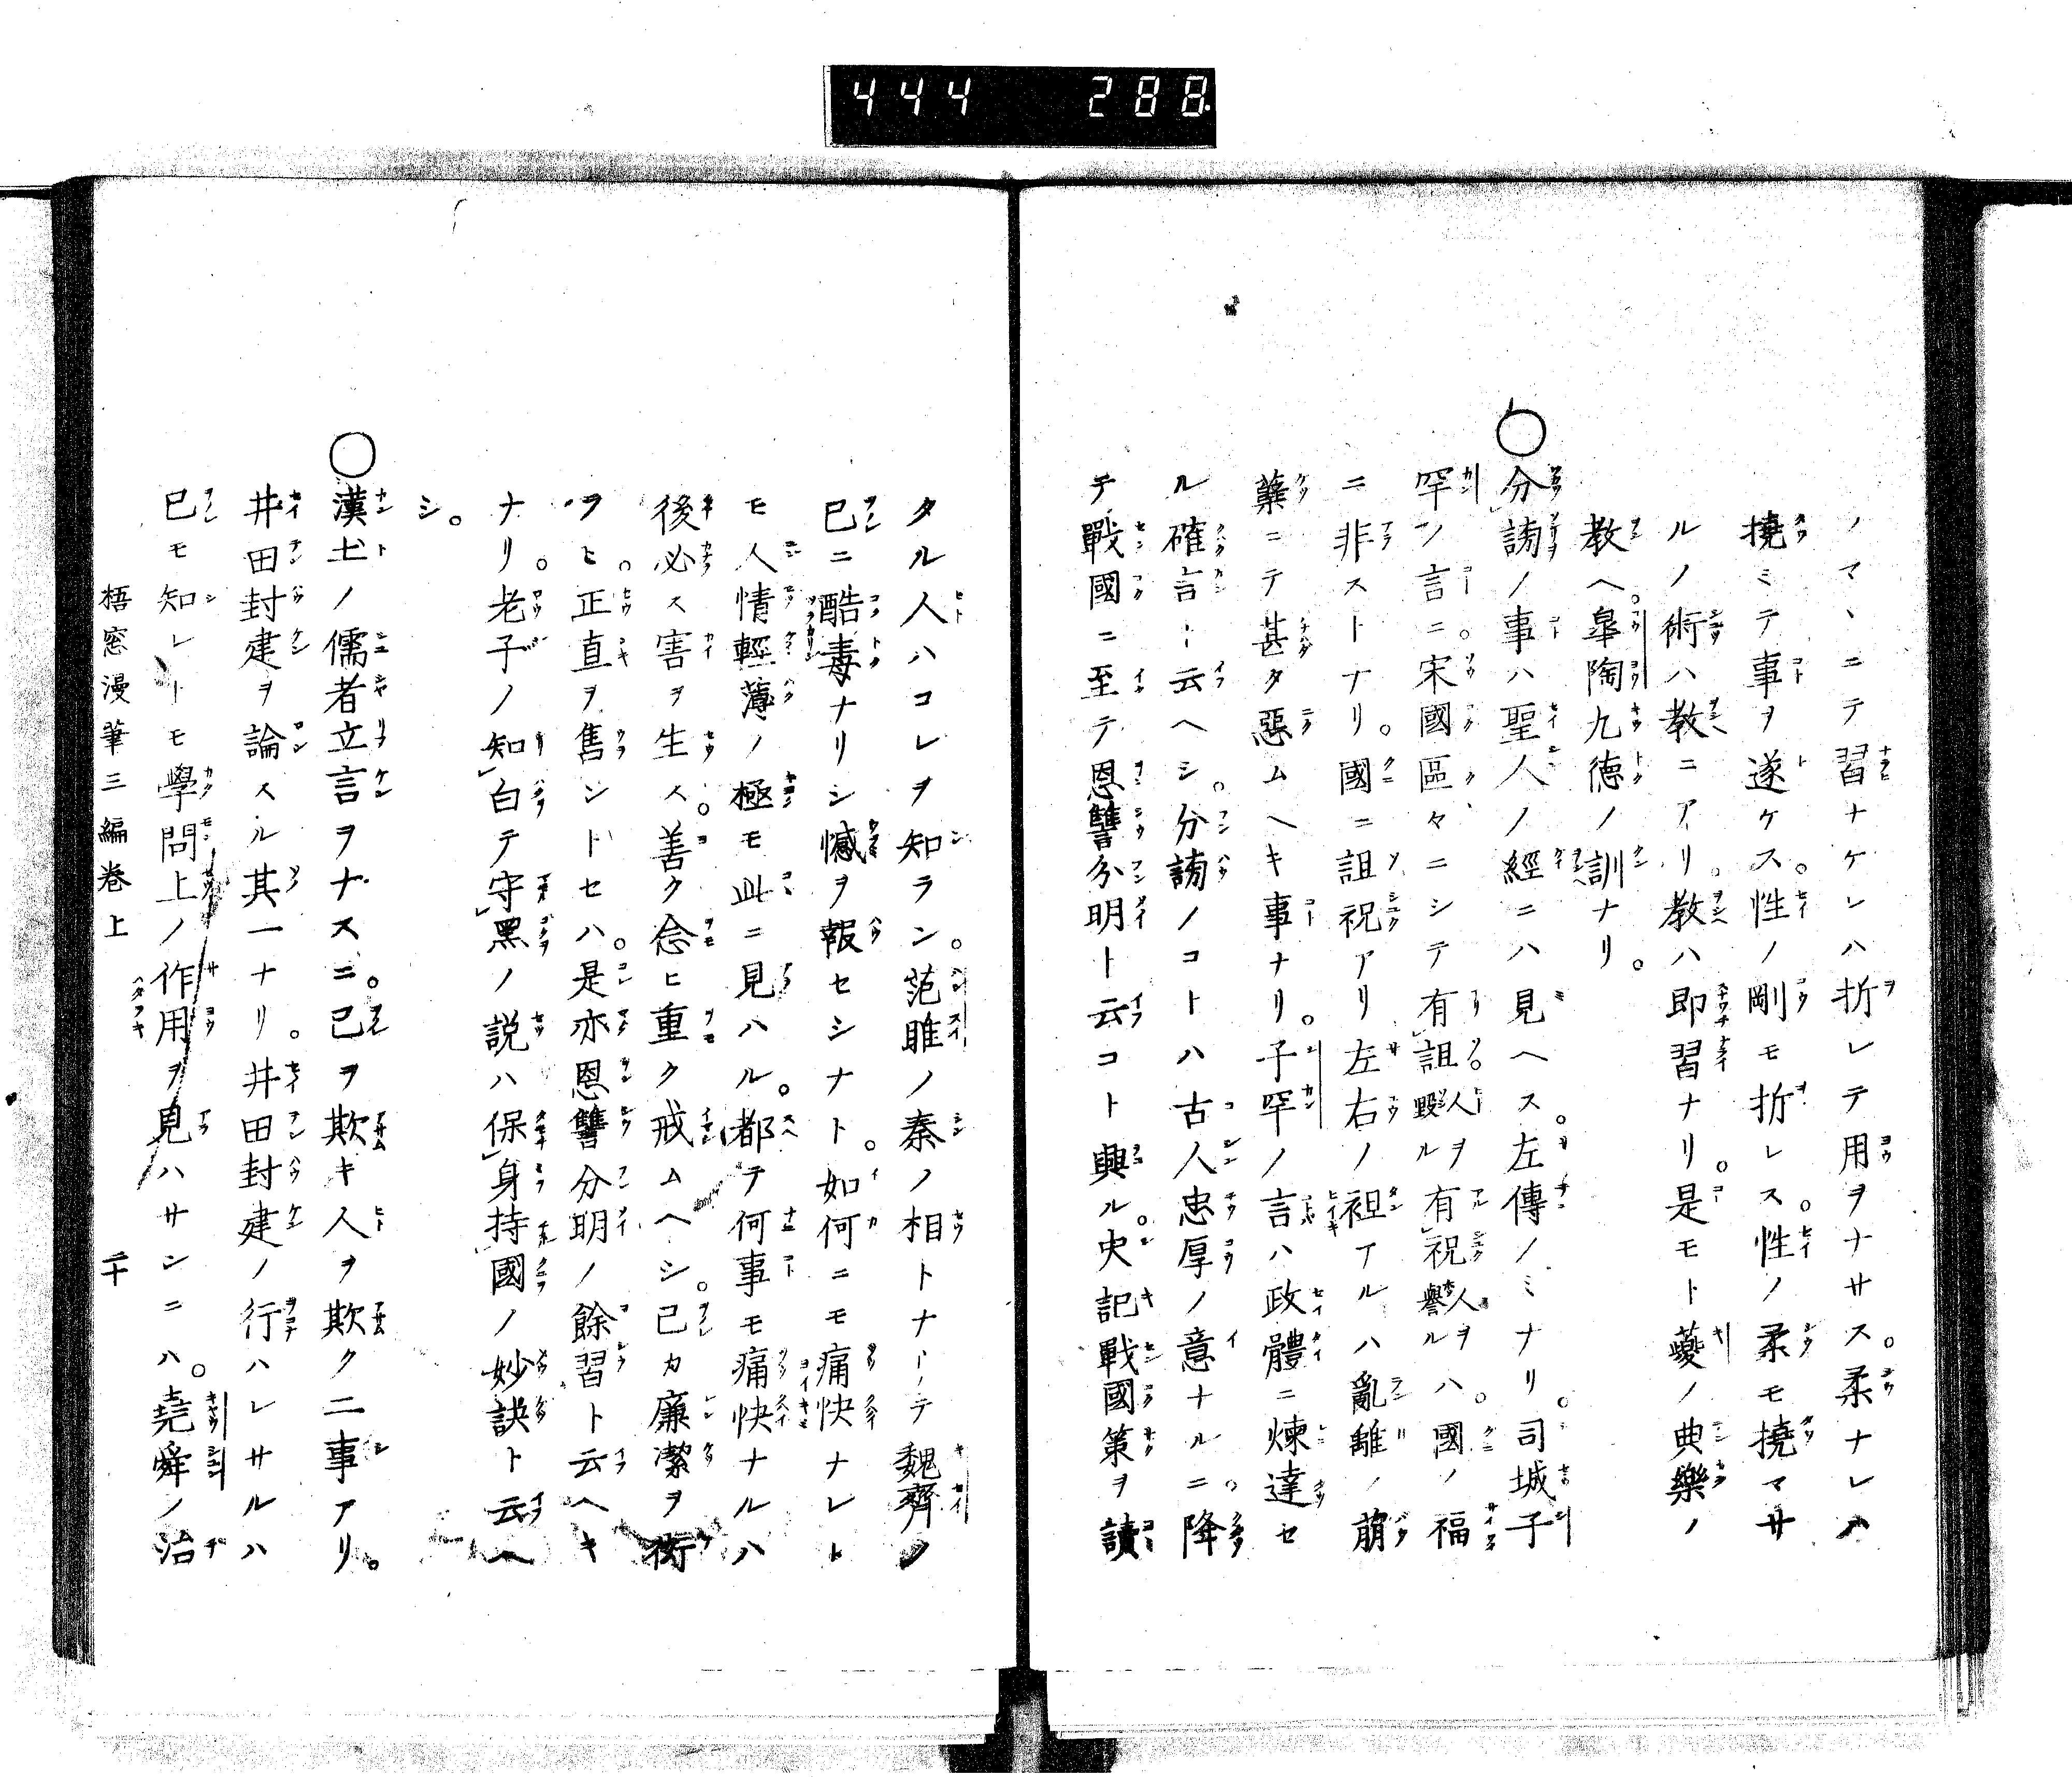 444 288
ノマヽニテ習ナケレハ折レテ用ヲナサス。柔ナレハ
撓ミテ事ヲ遂ケス。性ノ剛モ折レス。性ノ柔モ撓マサ
ルノ術ハ教ニアリ。教ハ即習ナリ。是モト夔ノ典樂ノ
教ヘ。皐陶九徳ノ訓ナリ。
○分謗ノ事ハ聖人ノ經ニハ見ヘス。左傳ノミナリ。司城子
罕ノ言ニ。宋國區々ニシテ有詛毀人ルヲ有祝譽人ルヲハ。國ノ福
ニ非ストナリ。國ニ詛祝アリ左右ノ袒アルハ亂離ノ萠
蘖ニテ甚タ惡ムヘキ事ナリ。子罕ノ言ハ政體ニ煉達セ
ル確言ト云ヘシ。分謗ノコトハ古人忠厚ノ意ナルニ。降
テ戰國ニ至テ恩讐分明ト云コト興ル。史記戰國策ヲ讀
タル人ハコレヲ知ラン。范雎ノ秦ノ相トナリテ魏齊ノ
已ニ酷毒ナリシ憾ヲ報セシナト。如何ニモ痛快ナレト
モ人情輕薄ノ極モ此ニ見ハル。都テ何事モ痛快ナルハ
後必ス害ヲ生ス。善ク念ヒ重ク戒ムヘシ。己カ廉潔ヲ衒
ヲヒ。正直ヲ售ントセハ。是亦恩讐分明ノ餘習ト云ヘキ
ナリ。老子ノ知白テ守黑ノ説ハ保身持國ノ妙訣ト云ヘ
シ。
○漢土ノ儒者立言ヲナスニ。己ヲ欺キ人ヲ欺ク二事アリ。
井田封建ヲ論スル其一ナリ。井田封建ノ行ハレサルハ
己モ知レトモ學問上ノ作用ヲ見ハサンニハ。堯舜ノ治
梧窓漫筆三編卷上 二十